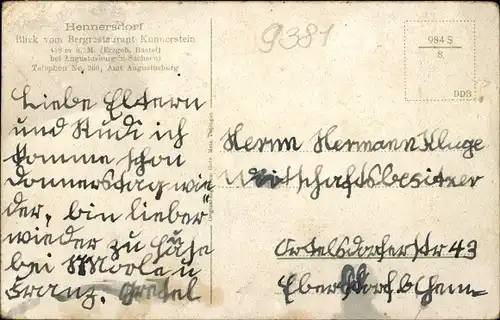 Hennersdorf
Blick vom Bergrestaurant Kunnerstein
ü. M. (Erzgeb. Bastei)
bei Augustusburg in Sachsen
Telephon No. 260, Amt Augustusburg
9381
984 S
8.
DDB
Liebe Eltern
und Rudi ich
komme schon
Donnerstag wie
der, bin lieber
wieder zu Hause
bei u
Franz. Gretel
Herrn Hermann Kluge
Wirtschaftsbesitzer
Ortelsdorferstr 43
Ebersdorf b Chem-